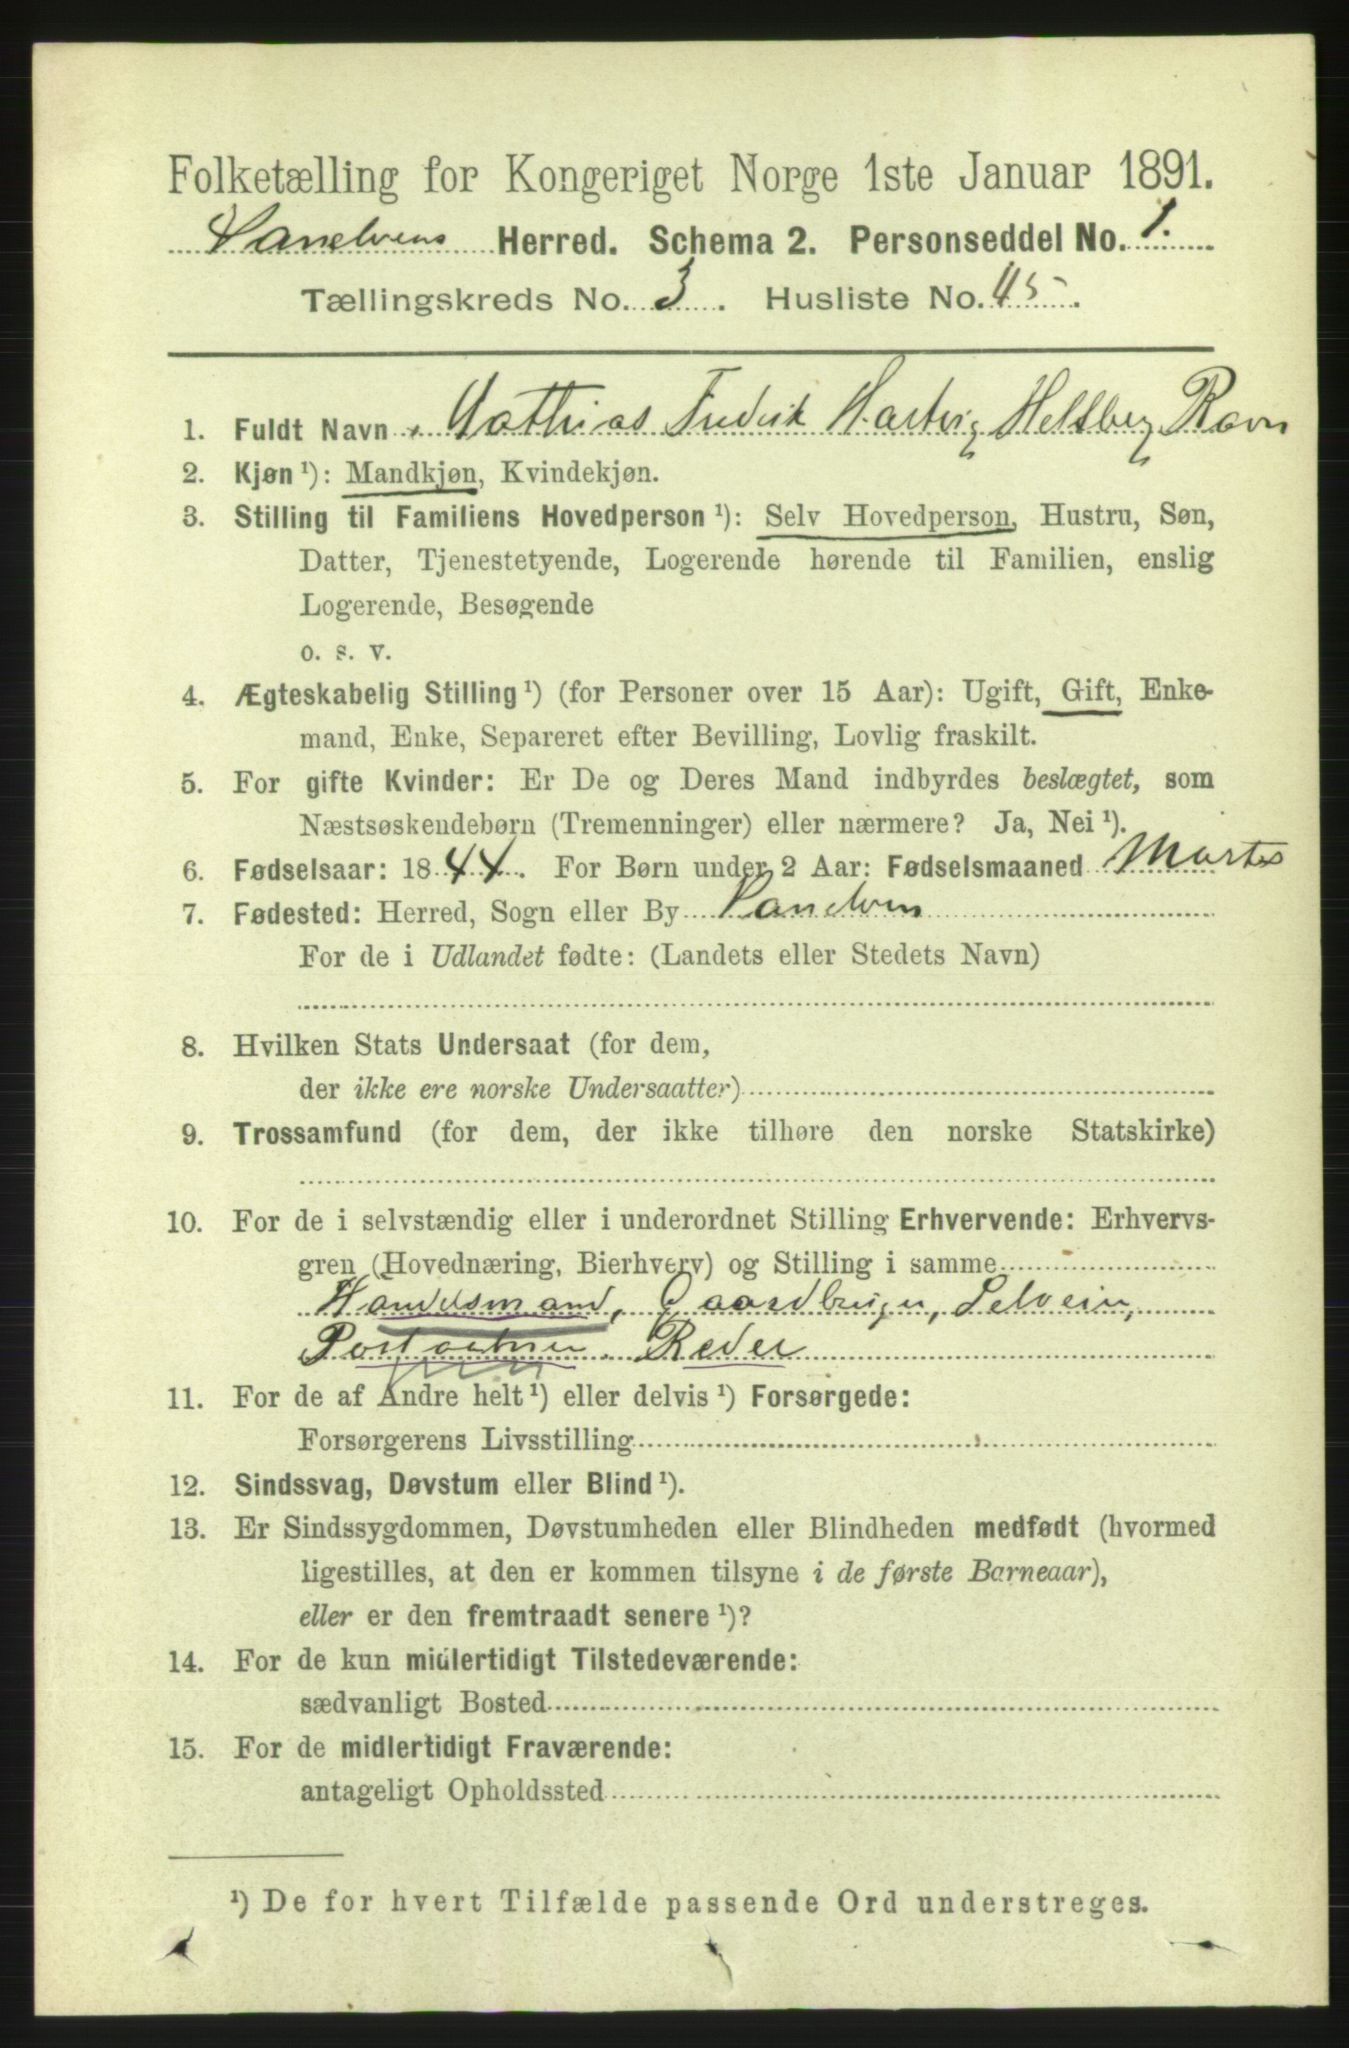 Folketælling for Kongeriget Norge 1ste Januar 1891.
Vanelvens Herred. Schema 2. Personseddel No. 1.
Tællingskreds No. 3. Husliste No. 45.
1. Fuldt Navn Mathias Fredrik Hartvig Heltberg Ravn
2. Kjøn ¹): Mandkjøn, Kvindekjøn.
3. Stilling til Familiens Hovedperson ¹): Selv Hovedperson, Hustru, Søn,
Datter, Tjenestetyende, Logerende hørende til Familien, enslig
Logerende, Besøgende
o. s. v.
4. Ægteskabelig Stilling ¹) (for Personer over 15 Aar): Ugift, Gift, Enke-
mand, Enke, Separeret efter Bevilling, Lovlig fraskilt.
5. For gifte Kvinder: Er De og Deres Mand indbyrdes beslægtet, som
Næstsøskendebørn (Tremenninger) eller nærmere? Ja, Nei ¹).
6. Fødselsaar: 1844. For Børn under 2 Aar: Fødselsmaaned Marts
7. Fødested: Herred, Sogn eller By Vanelven
For de i Udlandet fødte: (Landets eller Stedets Navn)
8. Hvilken Stats Undersaat (for dem,
der ikke ere norske Undersaatter)
9. Trossamfund (for dem, der ikke tilhøre den norske Statskirke)
10. For de i selvstændig eller i underordnet Stilling Erhvervende: Erhvervs-
gren (Hovednæring, Bierhverv) og Stilling i samme
Handelsmand, Gaardbruger, Selveier,
Postaabner. Reder
11. For de af Andre helt ¹) eller delvis ¹) Forsørgede:
Forsørgerens Livsstilling
12. Sindssvag, Døvstum eller Blind ¹).
13. Er Sindssygdommen, Døvstumheden eller Blindheden medfødt (hvormed
ligestilles, at den er kommen tilsyne i de første Barneaar),
eller er den fremtraadt senere ¹)?
14. For de kun midlertidigt Tilstedeværende:
sædvanligt Bosted
15. For de midlertidigt Fraværende:
antageligt Opholdssted
¹) De for hvert Tilfælde passende Ord understreges.